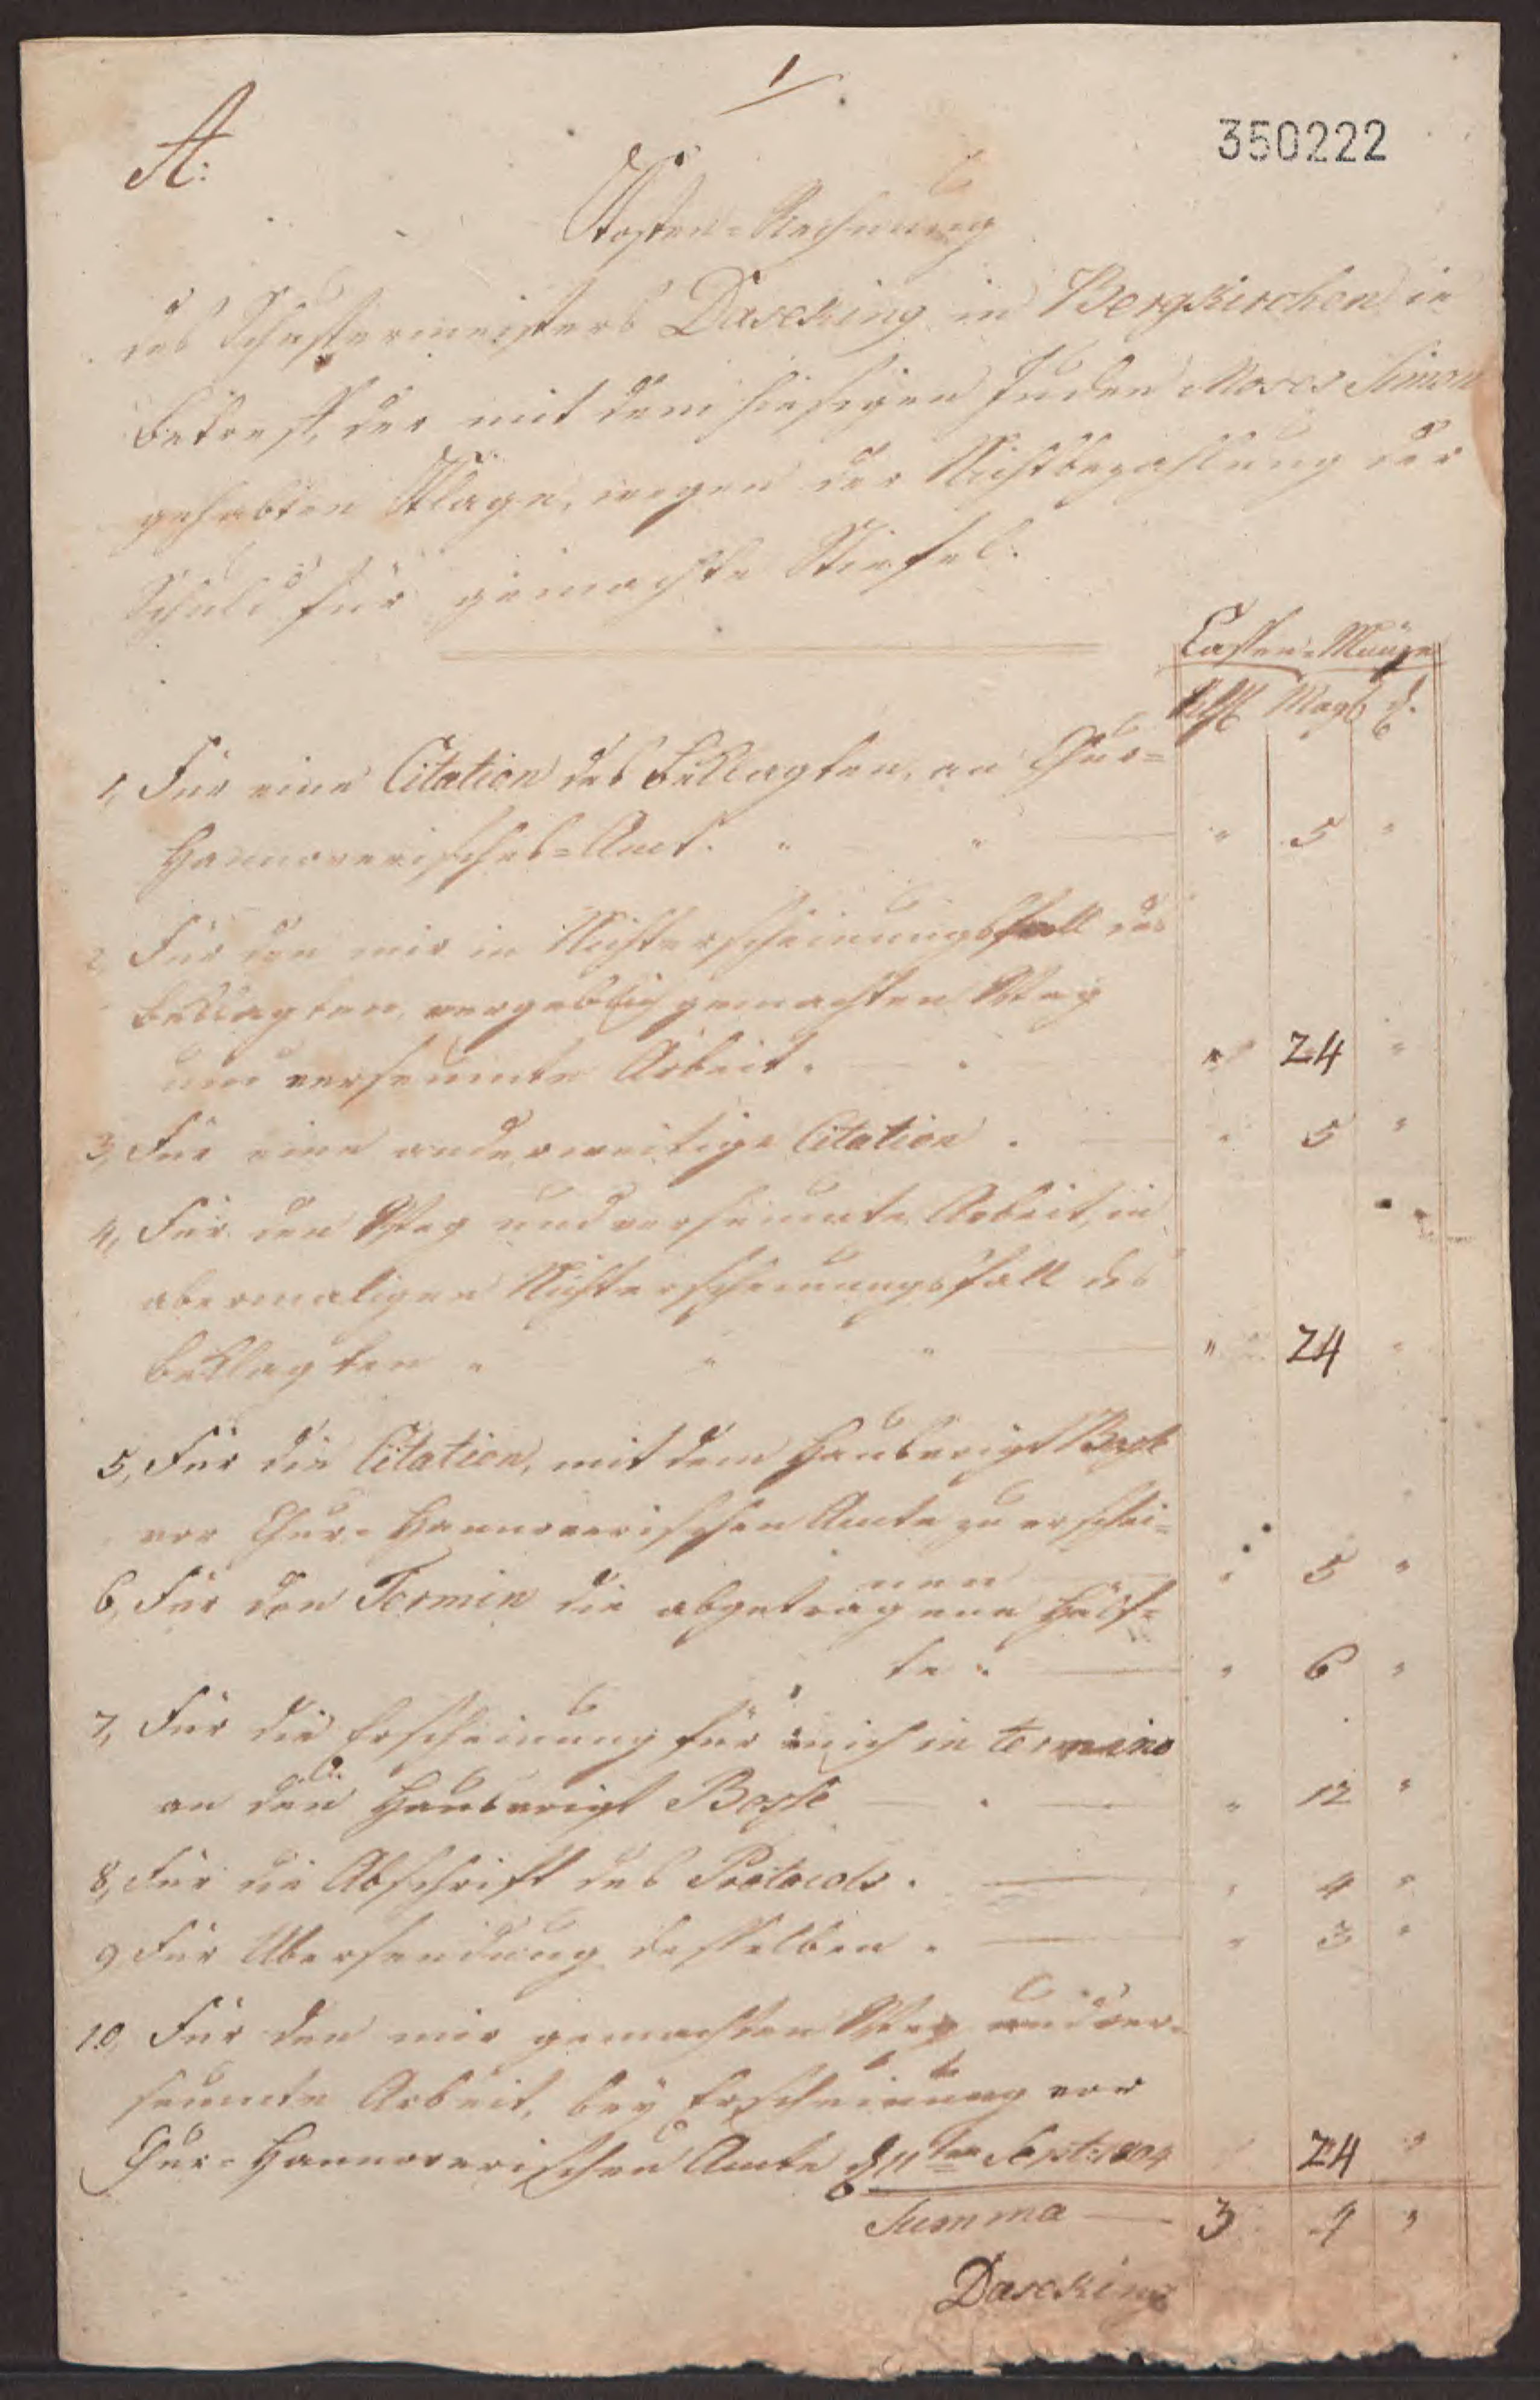 1
A:
350222
Kosten-Rechnung
des Schustermeisters Daseking in Bergkirchen in
betreff, der mit dem hiesigen Juden Moses Simon
gehabten Klage, wegen der Nichtbezahlung der
Schuld für gemachte Stiefel.
Cassen-Münze
Rthlr Mgr d.
1, Für eine Citation des Beklagten, an Chur-
Hannoverisches-Amt. " " " 5 "
2, Für den mir in Nichterscheinungsfall des
Beklagten, vergeblich gemachten Weg
und verseumte Arbeit. " 24 "
3, Für eine anderweitige Citation . " 5 "
4, Für den Weg und verseumte Arbeit, in
abermaligen Nichterscheinungsfall des
Beklagten " " " " 24 "
5, Für die Citation, mit dem Hausvoigt Bosse
vor Chur-Hannoverischen Amte zu erschei-
nen " 5 "
6, Für den Termin die abgetragene Hälf-
te . " 6 "
7, Für die Erscheinung für mich in termino
an den Hausvoigt Bosse " 12 "
8, Für die Abschrift des Protocols . " 4 "
9 Für Übersendung desselben . " 3 "
10, Für den mir gemachten Weg und ver-
seumte Arbeit, bey Erscheinung vor
Chur-Hannoverischen Amte d 11ten Sept: 1804 24 "
Summa 3 4 "
Daseking